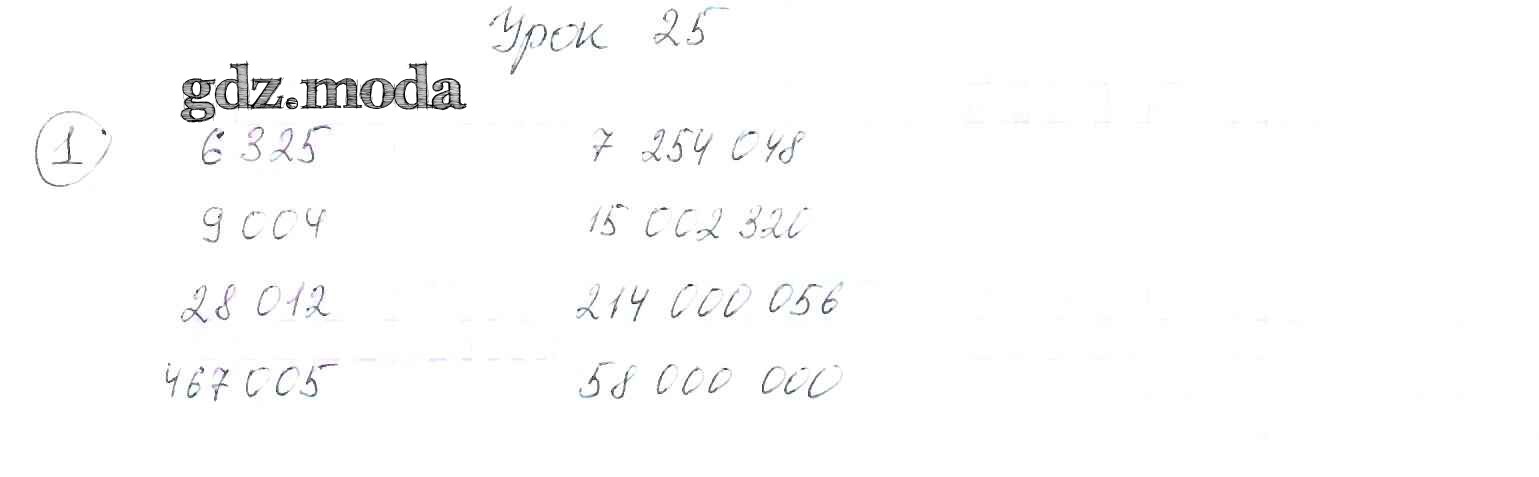 Урок 25
gdz.moda
1 6 325 7 254 048
9 004 15 002 320
28 012 214 000 056
467 005 58 000 000